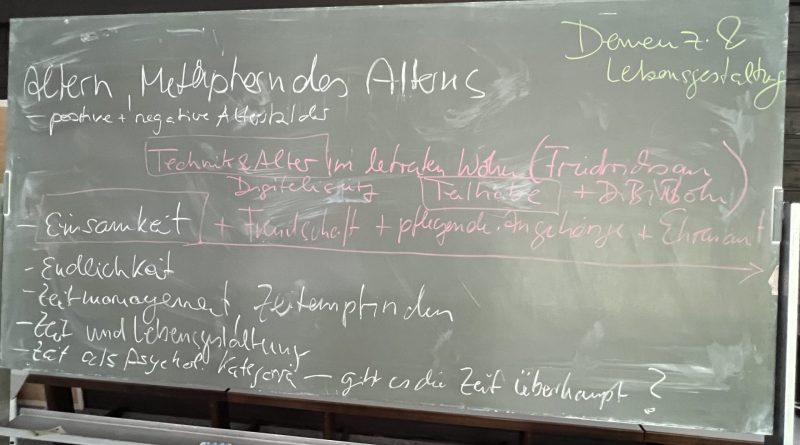 Demenz &
Lebensgestaltung
Altern, Metaphern des Alterns
- positive + negative Altersbilder
Technik & Alter im Wohn
Digitalisierung Teilhabe +
- Einsamkeit + Freundschaft + pflegende Angehörige + Ehrenamt
- Endlichkeit
- Zeitmanagement, Zeitempfinden
- Zeit und Lebensgestaltung
- Zeit als Psychol. Kategorie – gibt es die Zeit überhaupt?